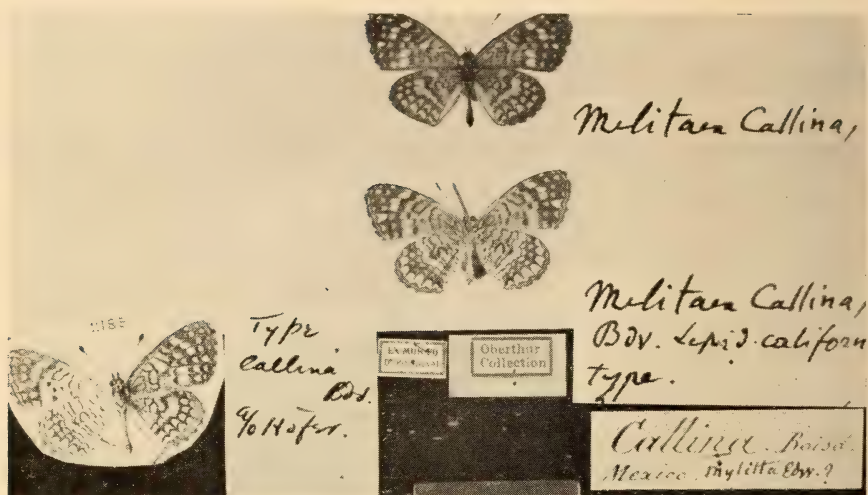 Melitaea Callina,
Melitaea Callina,
Bdv. Lepid. californ
type.
Type
callina
Bdv.
a/o Höfer.
EX MUSÆO
Oberthur
Collection
Callina Boisd.
Mexico. mylitta Edw. ?